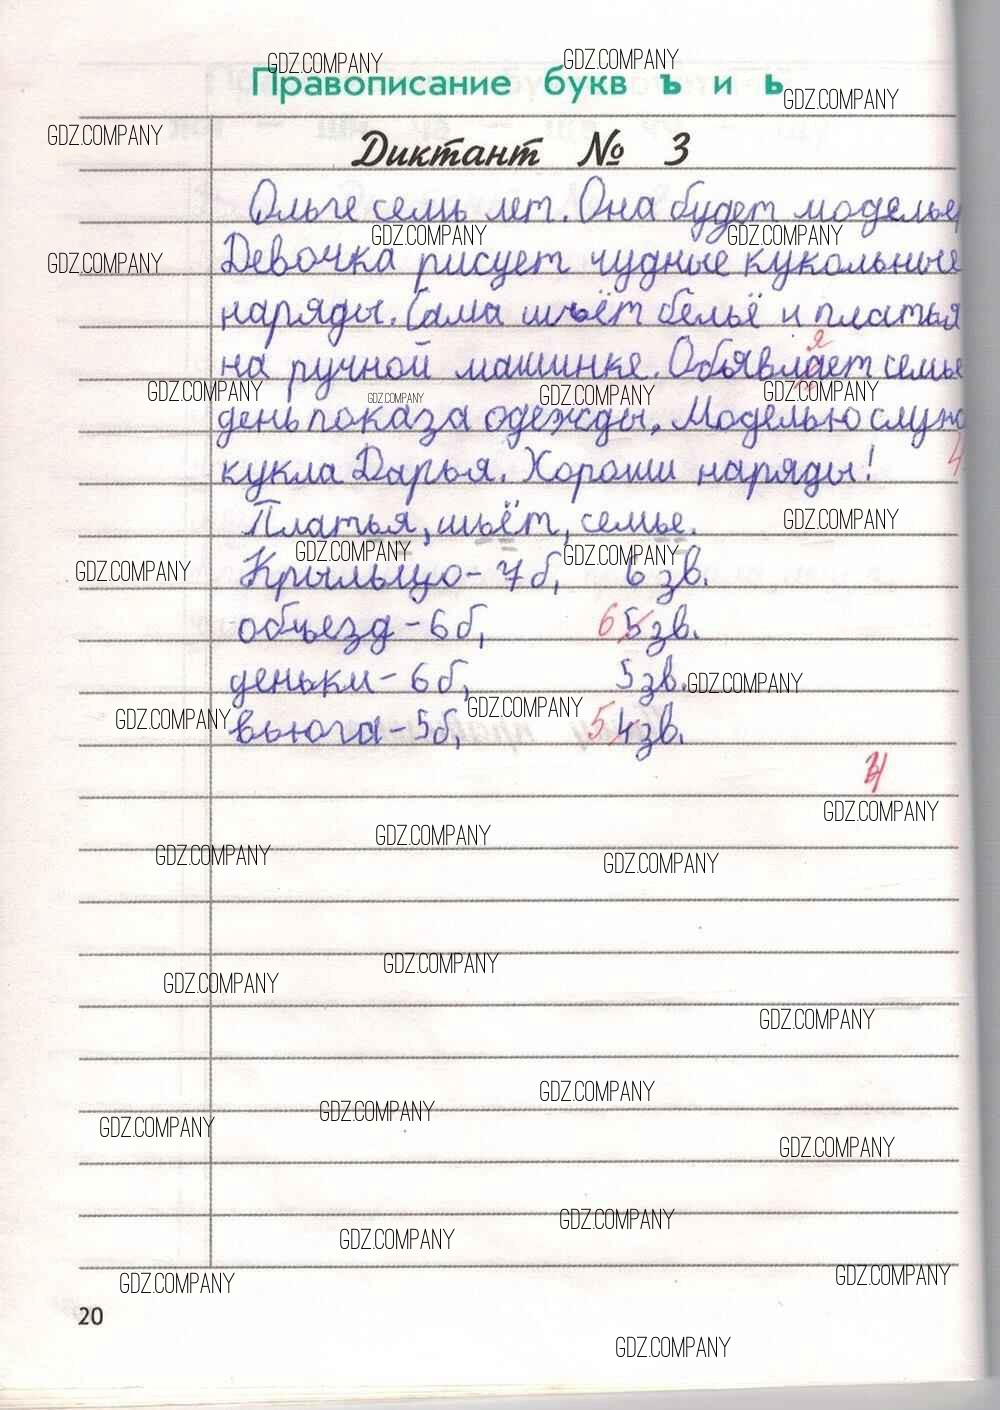 GDZ.COMPANY GDZ.COMPANY
Правописание букв ъ и ь
GDZ.COMPANY
GDZ.COMPANY
Диктант № 3
Ольге семь лет. Она будет моделье
GDZ.COMPANY GDZ.COMPANY
GDZ.COMPANY
Девочка рисует чудные кукольные
наряды. Сама шьёт бельё и платья
я
на ручной машинке. Объявлает семье
GDZ.COMPANY GDZ.COMPANY GDZ.COMPANY GDZ.COMPANY
день показа одежды. Моделью служ
кукла Дарья. Хороши наряды! 4
Платья, шьёт, семье.
GDZ.COMPANY
GDZ.COMPANY GDZ.COMPANY
GDZ.COMPANY
Крыльцо - 7 б, 6 зв.
объезд - 6 б, 6 5 зв.
деньки - 6 б, 5 зв.
GDZ.COMPANY
GDZ.COMPANY GDZ.COMPANY
вьюга - 5 б, 5 4 зв.
GDZ.COMPANY
GDZ.COMPANY
GDZ.COMPANY GDZ.COMPANY
GDZ.COMPANY
GDZ.COMPANY
GDZ.COMPANY
GDZ.COMPANY
GDZ.COMPANY
GDZ.COMPANY
GDZ.COMPANY
GDZ.COMPANY
GDZ.COMPANY
GDZ.COMPANY
GDZ.COMPANY
GDZ.COMPANY
20
GDZ.COMPANY